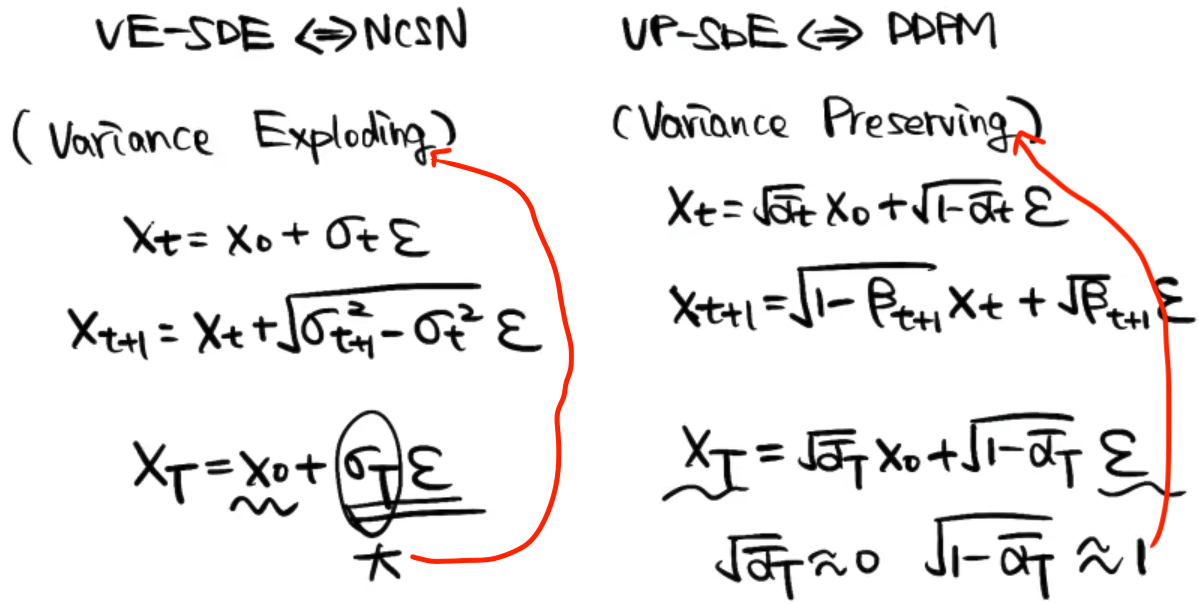 VE-SDE ⟺ NCSN
(Variance Exploding)
x_t = x_0 + σ_t ε
x_{t+1} = x_t + √(σ_{t+1}² - σ_t²) ε
x_T = x_0 + σ_T ε
大
VP-SDE ⟺ DDPM
(Variance Preserving)
x_t = √ᾱ_t x_0 + √(1-ᾱ_t) ε
x_{t+1} = √(1-β_{t+1}) x_t + √β_{t+1} ε
x_T = √ᾱ_T x_0 + √(1-ᾱ_T) ε
√ᾱ_T ≈ 0 √(1-ᾱ_T) ≈ 1